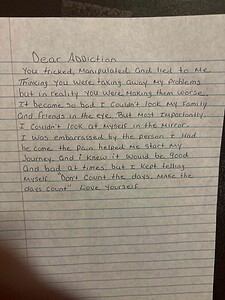 Dear Addiction
You tricked, Manipulated and lied to Me
Thinking you were taking away My Problems
but in reality You Were Making them Worse.
It became so bad I Couldn't look My Family
and friends in the eye. But Most Importantly
I couldn't look at Myself in the Mirror.
I was embarrassed by the person I Had
become the Pain helped Me start My
Journey. and i knew it would be good
and bad at times, but I Kept telling
Myself "Don't Count the days, Make the
days count" Love Yourself